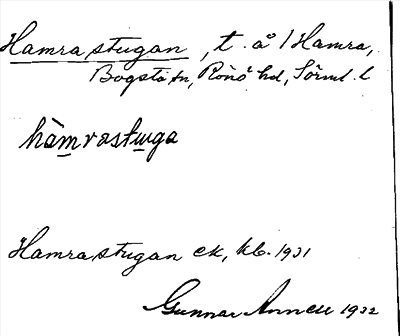 Hamrastugan, t. å 1 Hamra,
Bogsta sn, Rönö hd, Sörml. l
hàmrastuga
Hamrastugan ek, kb. 1931
Gunnar Annell 1932